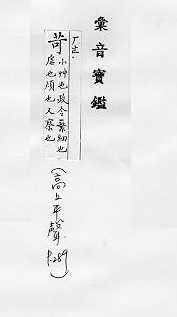 彙音寶鑑
ㄏㄜ·
苛
小艸也政令繁細也
虐也煩也又察也
(高上平聲
P.289)